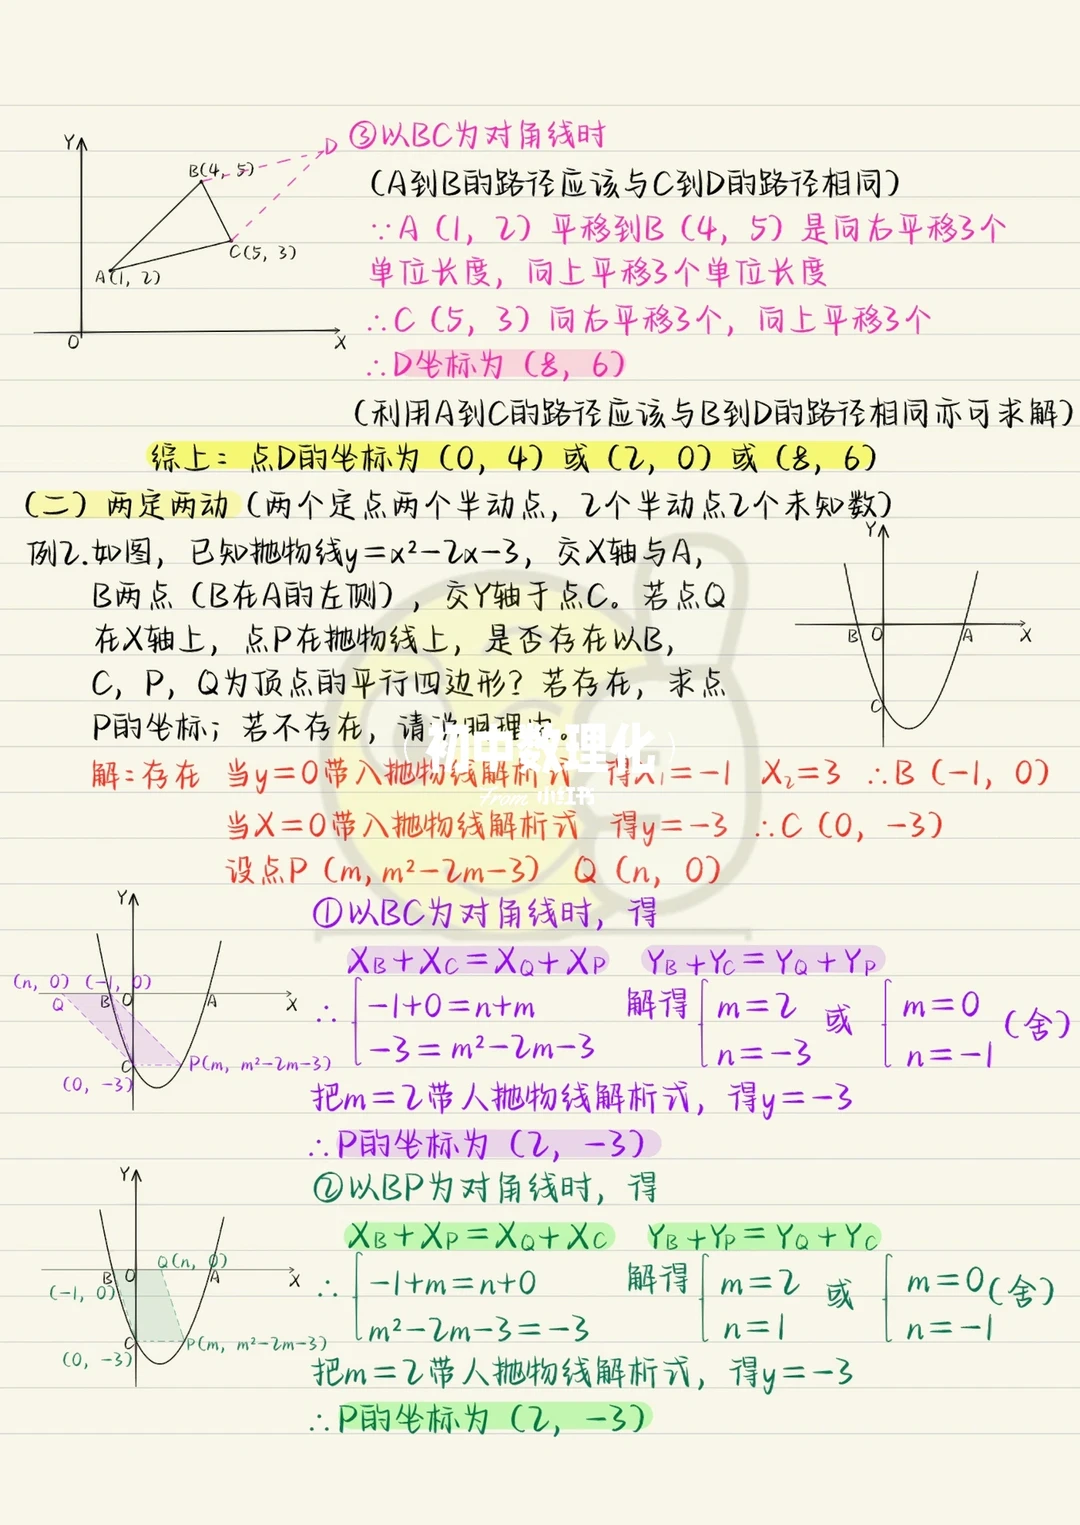 ③以BC为对角线时
(A到B的路径应该与C到D的路径相同)
∵A(1,2)平移到B(4,5)是向右平移3个
单位长度,向上平移3个单位长度
∴C(5,3)向右平移3个,向上平移3个
∴D坐标为(8,6)
(利用A到C的路径应该与B到D的路径相同亦可求解)
Y
B(4,5)
D
C(5,3)
A(1,2)
O
X
综上:点D的坐标为(0,4)或(2,0)或(8,6)
(二)两定两动(两个定点两个半动点,2个半动点2个未知数)
例2.如图,已知抛物线y=x²-2x-3,交X轴与A,
B两点(B在A的左侧),交Y轴于点C。若点Q
在X轴上,点P在抛物线上,是否存在以B,
C,P,Q为顶点的平行四边形?若存在,求点
P的坐标;若不存在,请说明理由。
Y
B O A X
C
(初中数理化)
From 小红书
解:存在 当y=0带入抛物线解析式 得X₁=-1 X₂=3 ∴B(-1,0)
当X=0带入抛物线解析式 得y=-3 ∴C(0,-3)
设点P(m,m²-2m-3) Q(n,0)
①以BC为对角线时,得
X_B+X_C=X_Q+X_P Y_B+Y_C=Y_Q+Y_P
∴ { -1+0=n+m 解得 { m=2 或 { m=0 (舍)
-3=m²-2m-3 n=-3 n=-1
把m=2带人抛物线解析式,得y=-3
∴P的坐标为(2,-3)
Y
(n,0) (-1,0)
Q B O A X
C P(m,m²-2m-3)
(0,-3)
②以BP为对角线时,得
X_B+X_P=X_Q+X_C Y_B+Y_P=Y_Q+Y_C
∴ { -1+m=n+0 解得 { m=2 或 { m=0 (舍)
m²-2m-3=-3 n=1 n=-1
把m=2带人抛物线解析式,得y=-3
∴P的坐标为(2,-3)
Y
Q(n,0)
B O A X
(-1,0)
C P(m,m²-2m-3)
(0,-3)